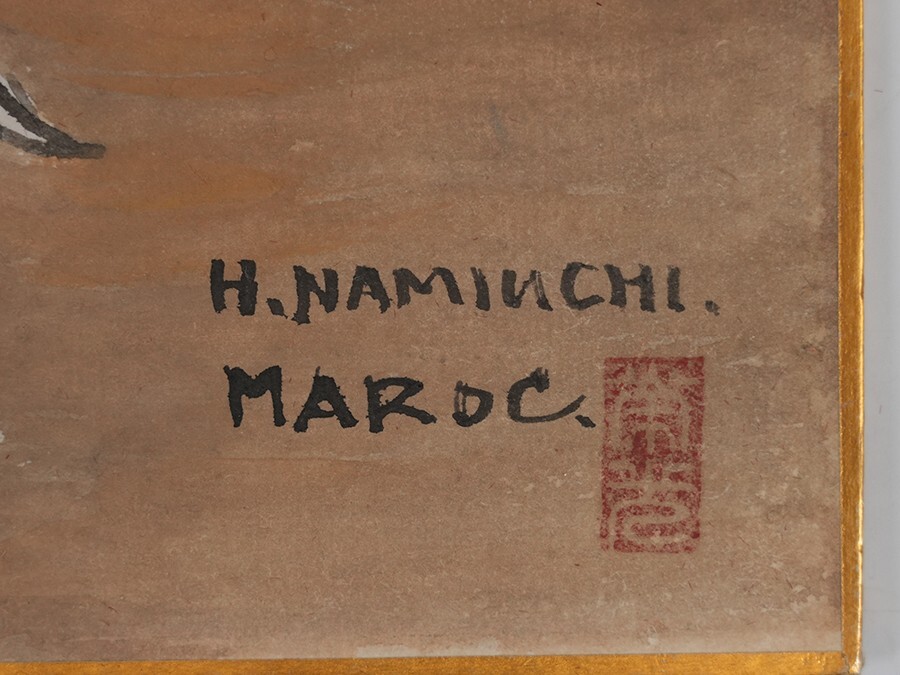 H. NAMIUCHI.
MAROC.